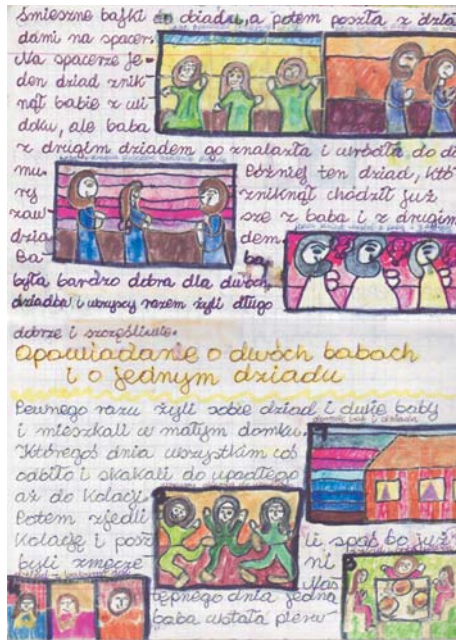 śmieszne bajki do obiadu, a potem poszła z dzia
dami na spacer.
Na spacerze je-
den dziad znik
nął babie z wi
doku, ale baba
z drugim dziadem go znalazła i wróciła do do
mu. Później ten dziad, któ
ry zniknął chodził już
zaw sze z babą i z drugim
dzia dem.
Ba ba
była bardzo dobra dla dwóch
dziadba i wszyscy razem żyli długo
dobrze i szczęśliwie.
Opowiadanie o dwóch babach
i o jednym dziadu
Pewnego razu żyli sobie dziad i dwie baby
i mieszkali w małym domku.
Któregoś dnia wszystkim coś
odbiło i skakali do upadłego
aż do kolacji.
Potem zjedli
kolację i posz li spać bo już
byli zmęcze ni
Nas
tępnego dnia jedna
baba wstała pierw